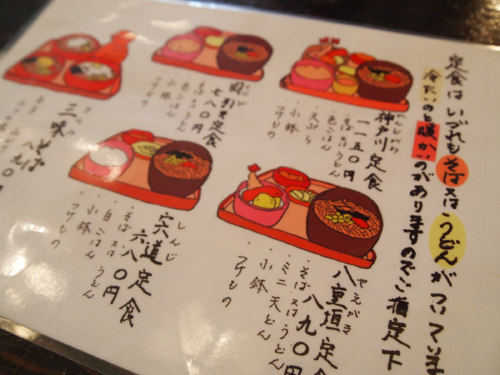 定食はいづれもそばまたはうどんがついています
冷たいのと暖かいのがありますのでご指定下
かんどがわ
神戸川定食
一一五〇円
・そば又はうどん
・天ぷら
・色ごはん
・小鉢
・つけもの
やえがき
八重垣定食
八九〇円
・そば又はうどん
・ミニ天どん
・小鉢
・つけもの
定食
七八〇円
・そば又はうどん
・色ごはん
・小鉢
・つけもの
しんじ
宍道定食
六八〇円
・そば又はうどん
・白ごはん
・小鉢
・つけもの
三味そば
八九〇